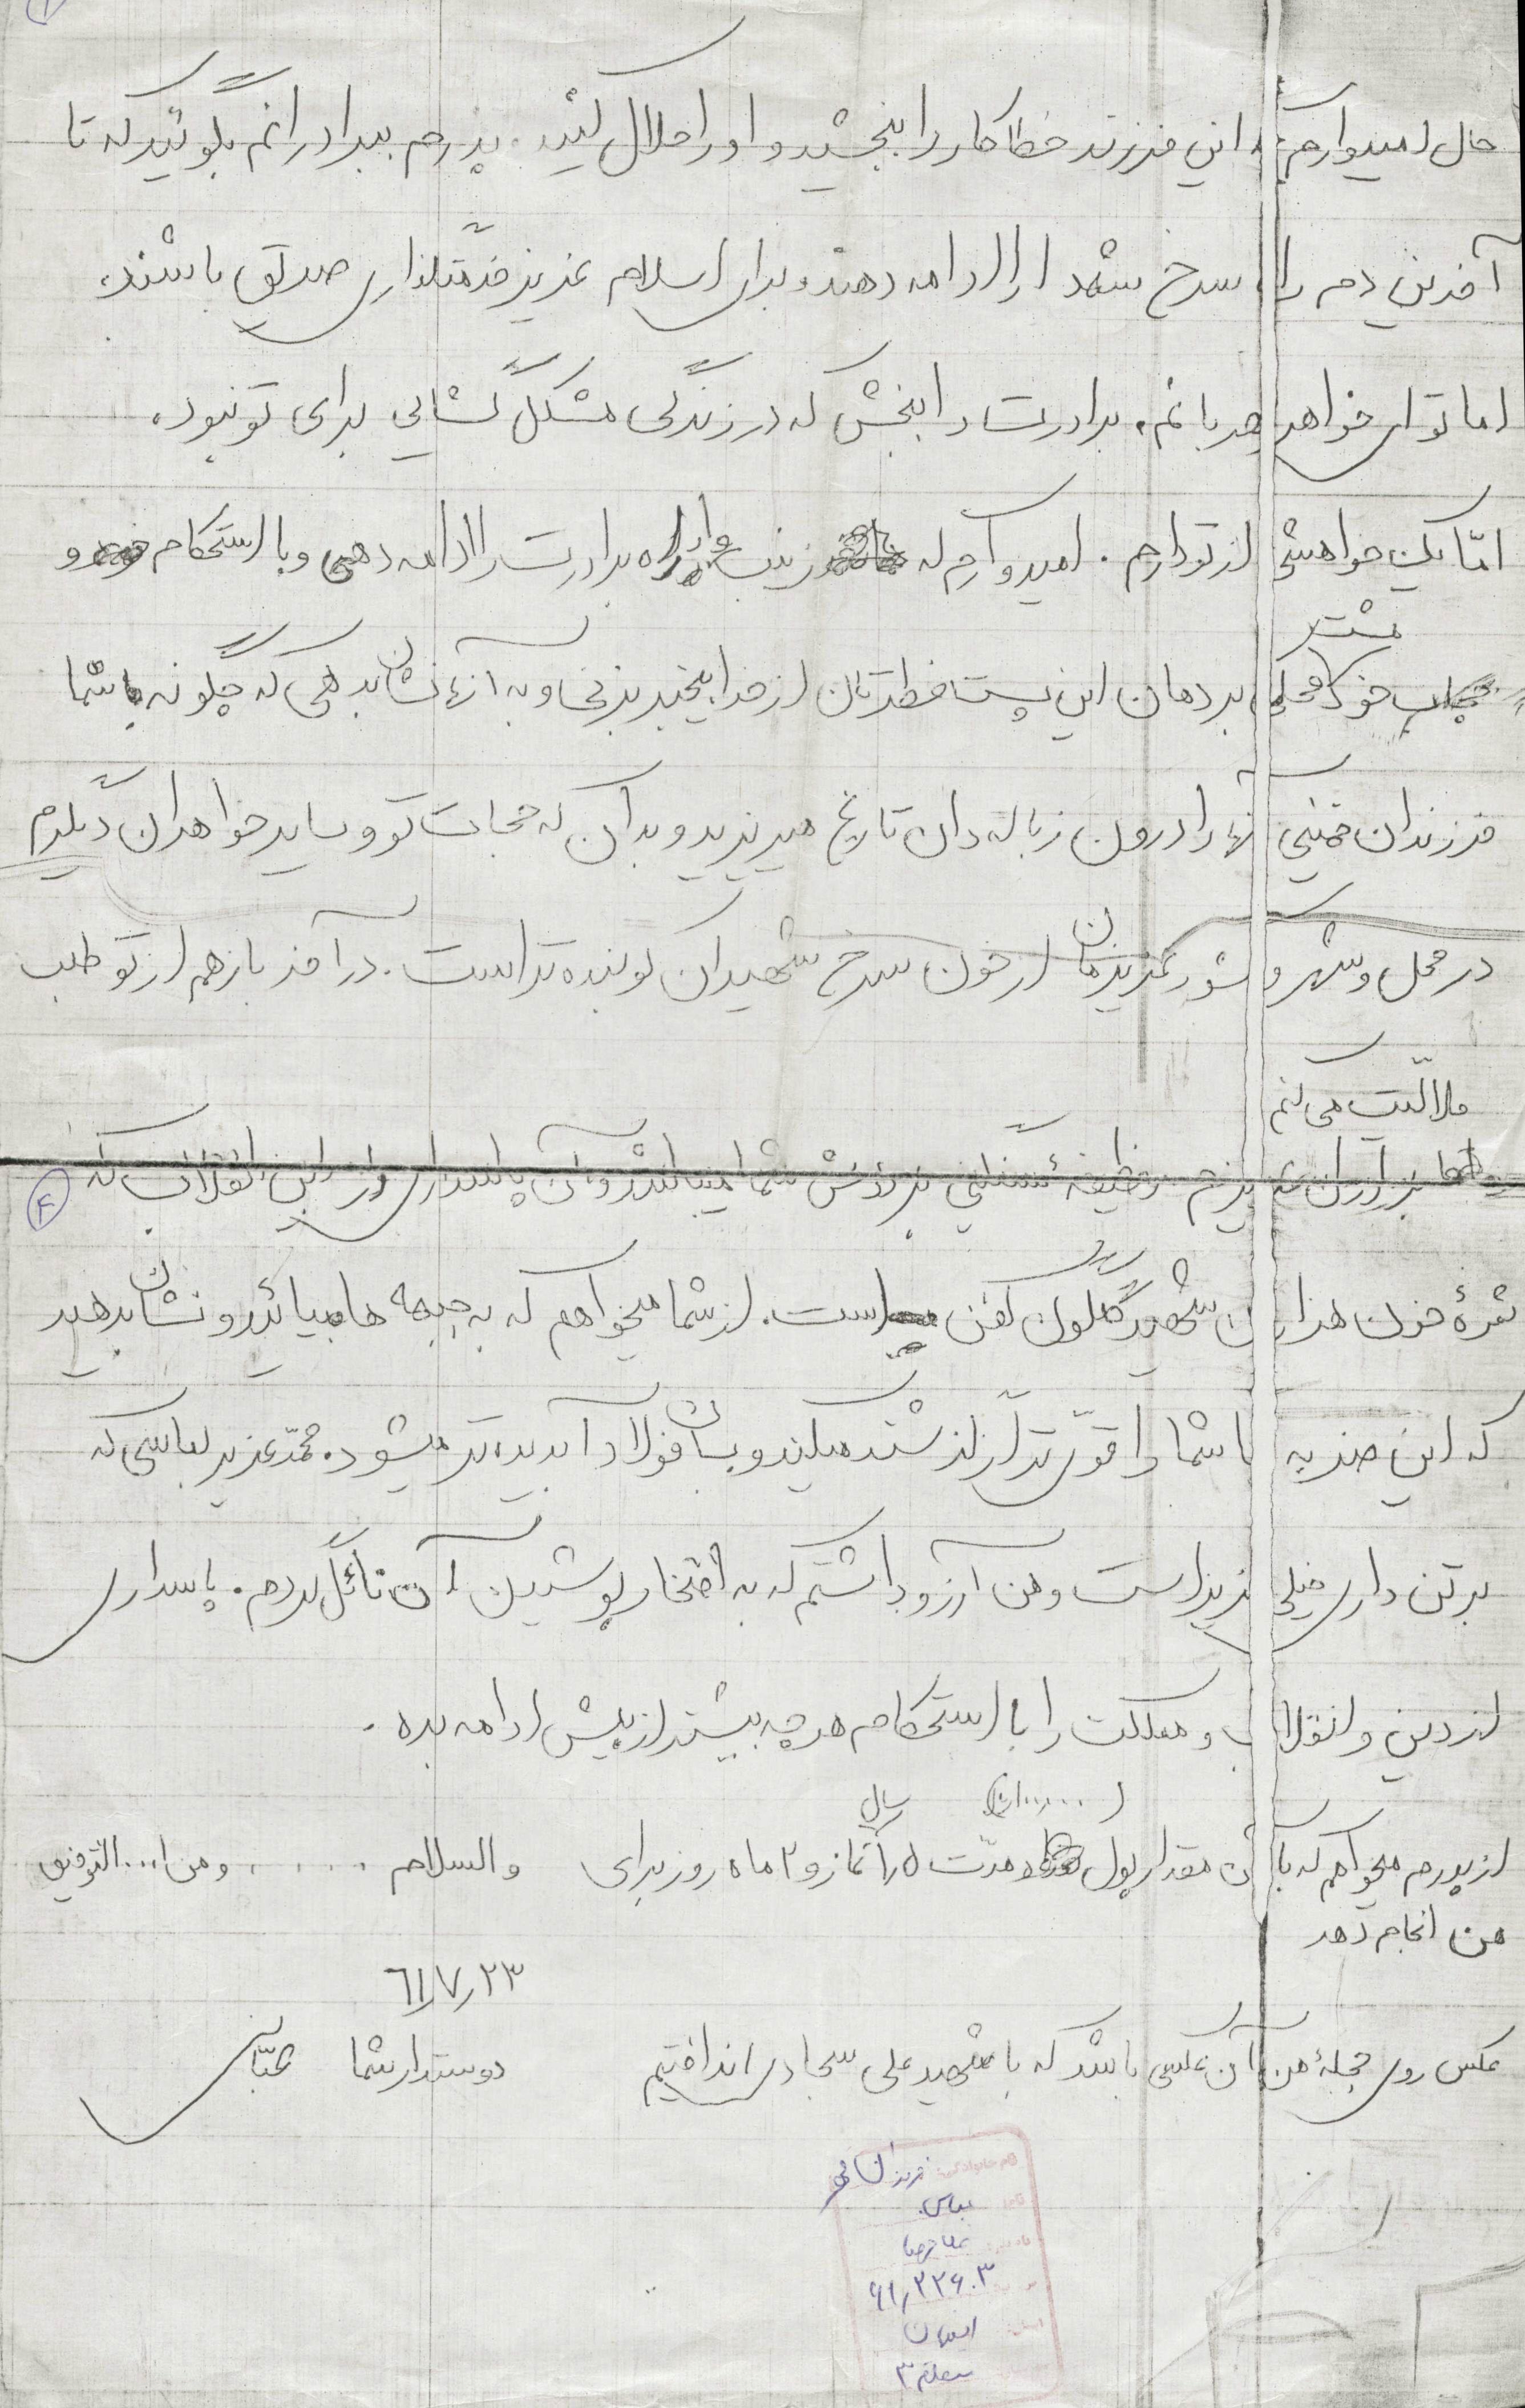 حال امیدوارم این فرزند خطاکار را ببخشید و او را حلال کنید. پدرم ببرادرانم بگوئید که تا
آخرین دم راه سرخ شهدا را ادامه دهند و برای اسلام عزیز خدمتگذاری صدیق باشند.
اما تو ای خواهر مهربانم، برادرت را ببخش که در زندگی مشکل گشایی برای تو نبود.
امّا یک خواهشی از تو دارم. امیدوارم که زینب وار راه برادرت را ادامه دهی و با استحکام و
حجاب خود مشت محکمی بر دهان این پست فطرتان از خدا بیخبر بزنی و به آنها نشان بدهی که چگونه شما
فرزندان خمینی آنها را درون زباله دان تاریخ میریزید و بدان که حجاب تو و سایر خواهران دیگرم
در محل و شهر و کشور عزیزمان از خون سرخ شهیدان کوبنده تر است. در آخر باز هم از تو طلب
حلالیّت می کنم
و اما برادران عزیزم وظیفهٔ سنگینی بر دوش شما میباشد و آن پاسداری از این انقلاب که
۴
ثمرهٔ خون هزاران شهید گلگون کفن است. از شما میخواهم که به جبهه ها بیائید و نشان بدهید
که این ضربه ها شما را قوّی تر از گذشته میکند و بسان فولاد آبدیده تر میشود. محمّد عزیز لباسی که
بر تن داری خیلی عزیز است و من آرزو داشتم که به افتخار پوشیدن آن نائل گردم. پاسداری
از دین و انقلاب و مملکت را با استحکام هر چه بیشتر از پیش ادامه بده.
از پدرم میخواهم که با آن مقدار پول مدّت ۵ سال نماز و ۲ ماه روزه برای
من انجام دهد
والسلام ..... و من ا... التوفیق
۶۱/۷/۲۳
عکس روی حجلهٔ من آن عکسی باشد که با شهید علی سجادی انداختیم
دوستدار شما عبّاس
نام خانوادگی:
عباس
۶۱/۲۲۶۰۳
اصفهان
منطقه ۳